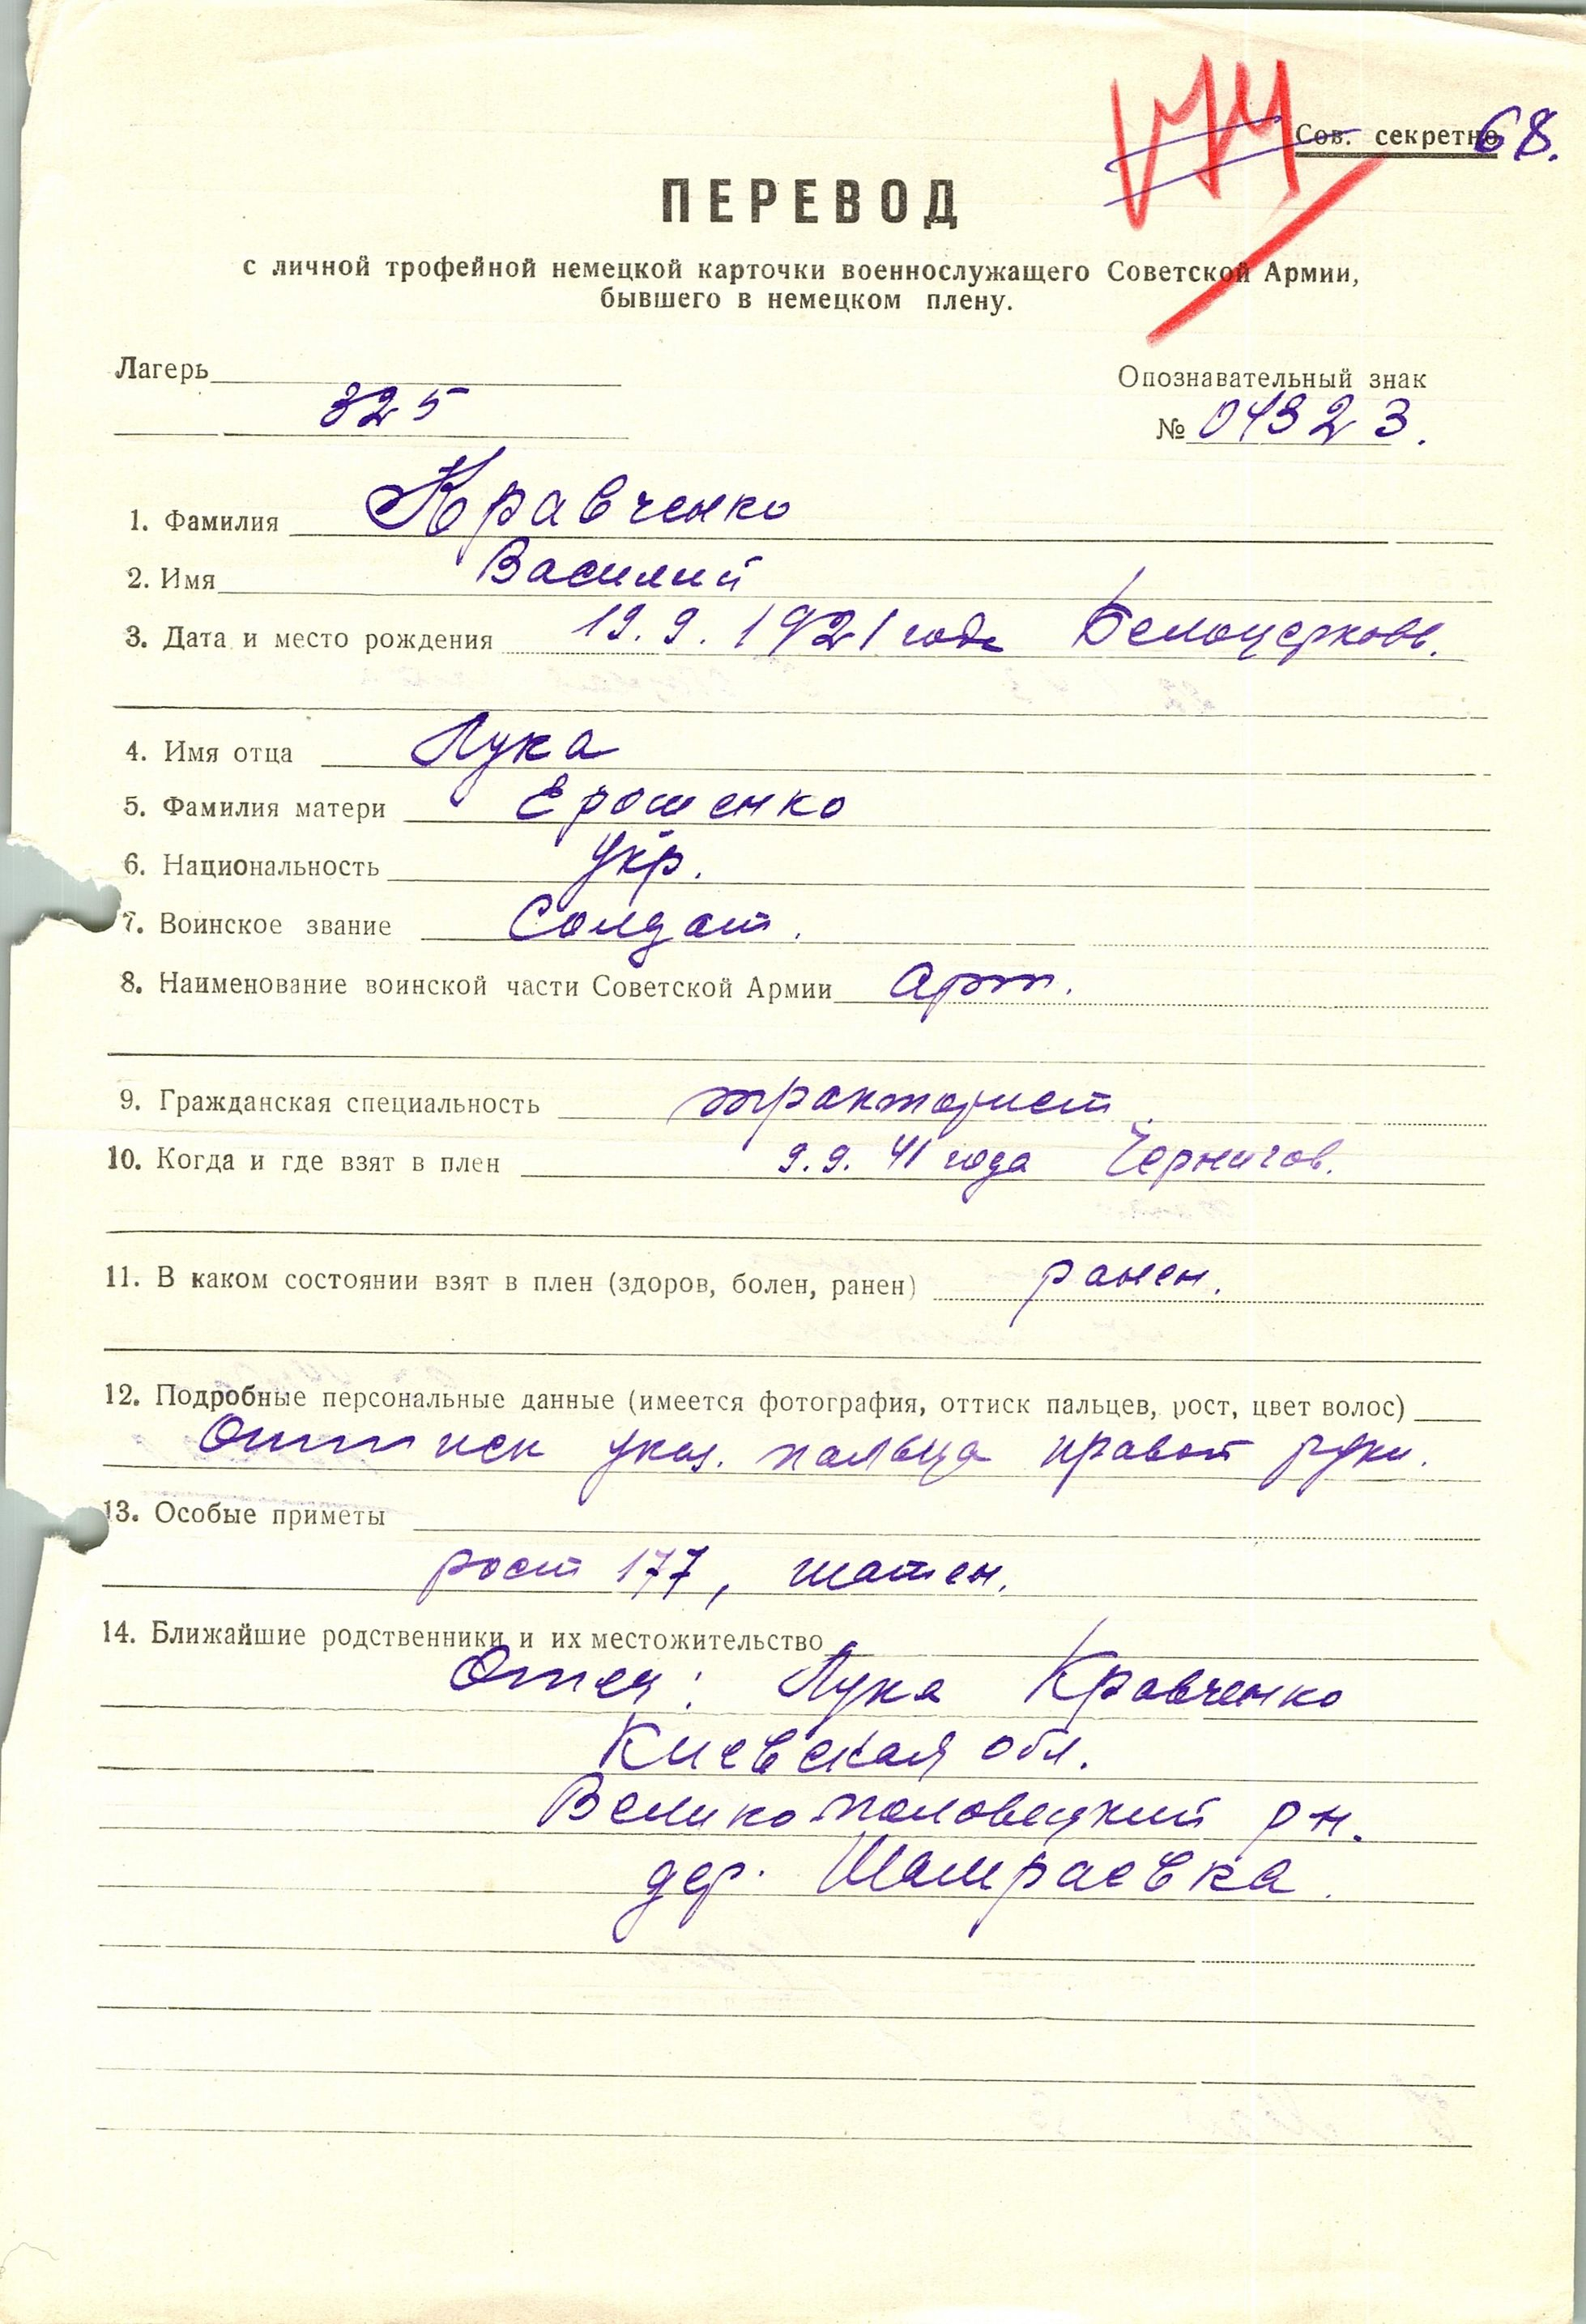 Сов. секретно 68.
ПЕРЕВОД
с личной трофейной немецкой карточки военнослужащего Советской Армии,
бывшего в немецком плену.
Лагерь
325
Опознавательный знак
№ 04323.
1. Фамилия Кравченко
2. Имя Василий
3. Дата и место рождения 19.9.1921 года Белоцерковь.
4. Имя отца Лука
5. Фамилия матери Ерошенко
6. Национальность Укр.
7. Воинское звание Солдат.
8. Наименование воинской части Советской Армии арт.
9. Гражданская специальность тракторист
10. Когда и где взят в плен 9.9.41 года Чернигов.
11. В каком состоянии взят в плен (здоров, болен, ранен) ранен.
12. Подробные персональные данные (имеется фотография, оттиск пальцев, рост, цвет волос)
Оттиск указ. пальца правой руки.
13. Особые приметы
рост 177, шатен.
14. Ближайшие родственники и их местожительство
Отец: Лука Кравченко
Киевская обл.
Великополовецкий рн.
дер. Шамраевка.